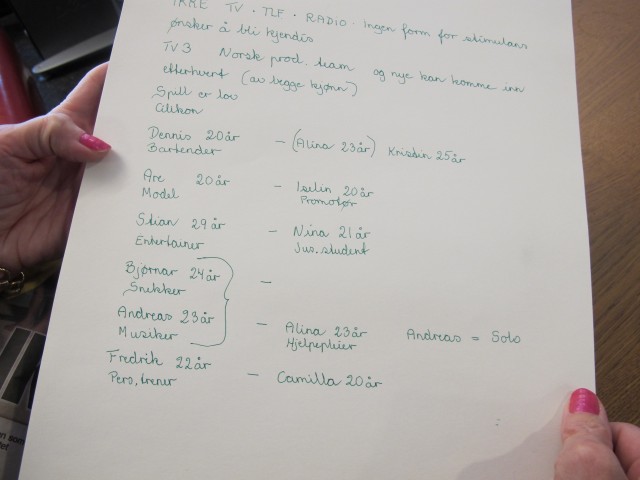 IKKE TV · TLF · RADIO · Ingen form for stimulans
ønsker å bli kjendis
TV3 Norsk prod. team og nye kan komme inn
etterhvert (av begge kjønn)
Spill er lov
Silikon
Dennis 20 år - (Alina 23 år) Kristin 25 år
Bartender
Are 20 år - Iselin 20 år
Model Promotør
Stian 29 år - Nina 21 år
Entertainer Jus. student
Bjørnar 24 år -
Snikker
Andreas 23 år - Alina 23 år Andreas = Solo
Musiker Hjelpepleier
Fredrik 22 år - Camilla 20 år
Pers, trener